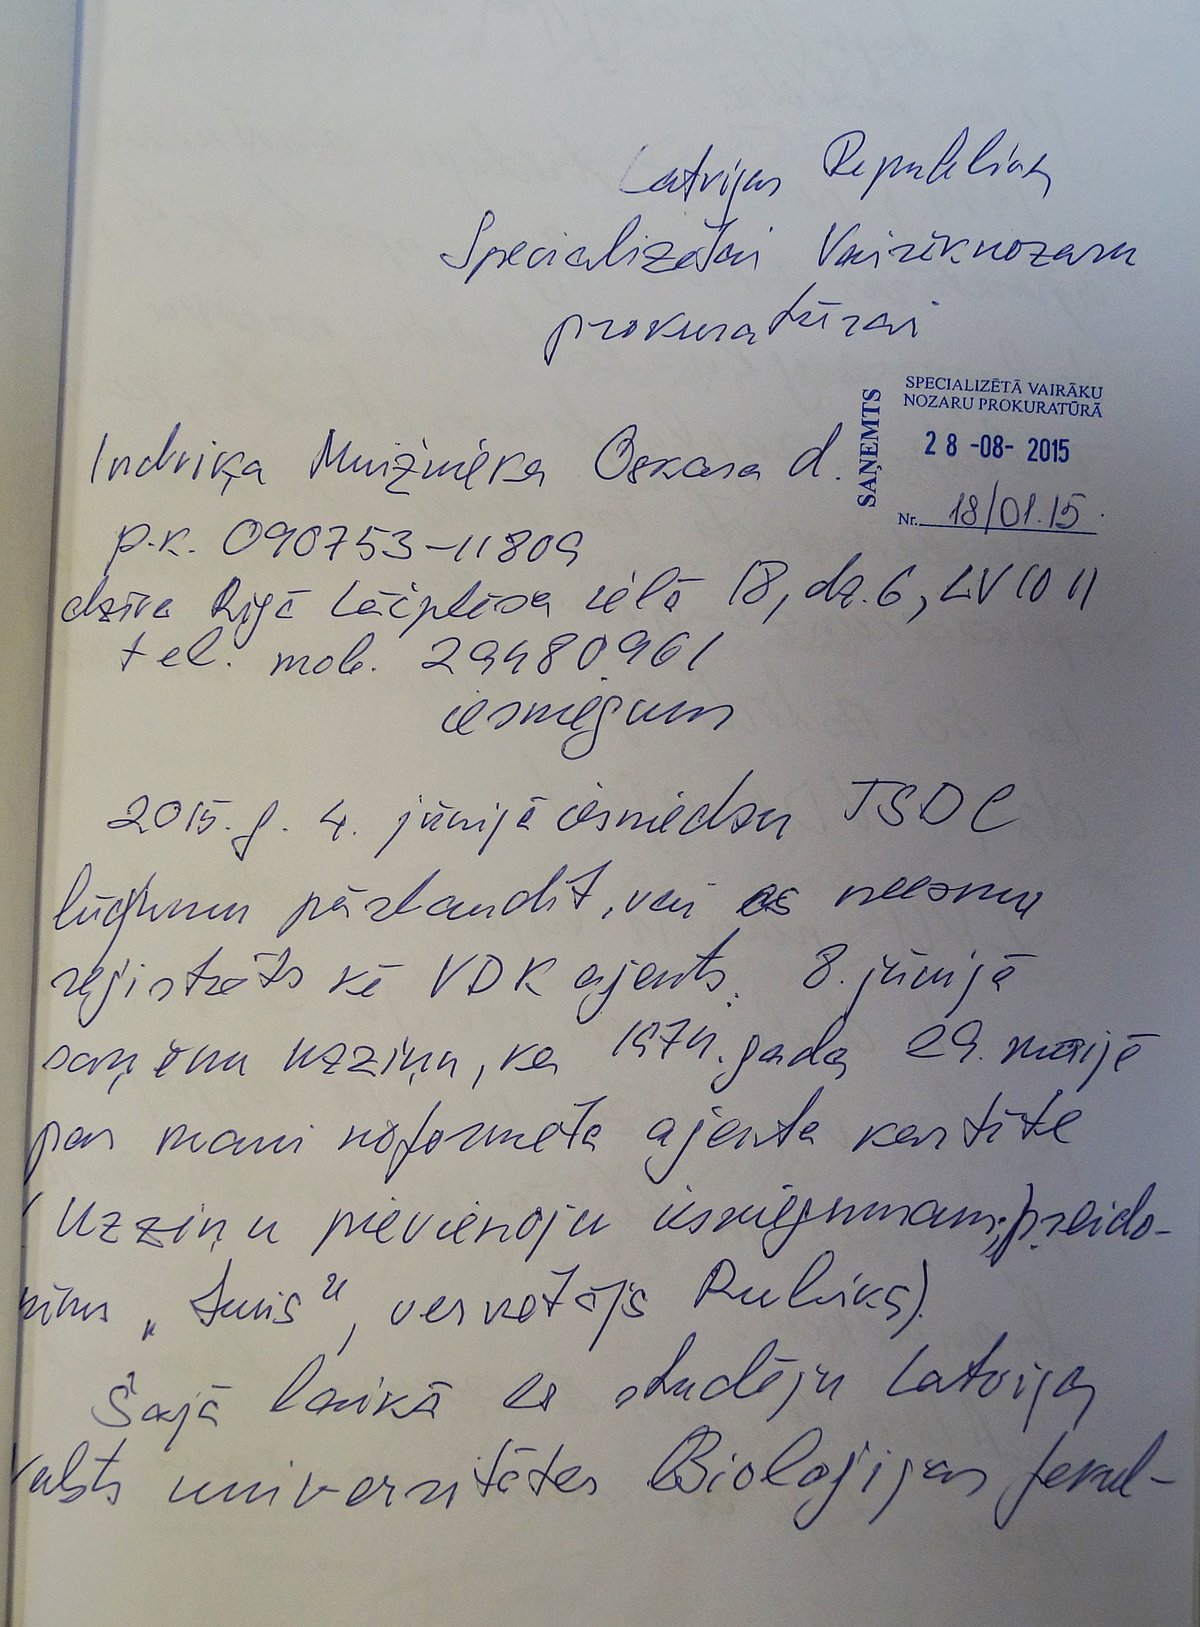 Latvijas Republikas
Specializētai Vairāknozaru
prokuratūrai
SAŅEMTS
SPECIALIZĒTĀ VAIRĀKU
NOZARU PROKURATŪRĀ
28 -08- 2015
Nr. 18/01.15.
Indriķa Muižnieka Oskara d.
p.k. 090753-11809
dzīv. Rīgā Lāčplēša ielā 18, dz. 6, LV 1011
tel. mob. 29480961
iesniegums
2015. g. 4. jūnijā iesniedzu TSDC
lūgumu pārbaudīt, vai es neesmu
reģistrēts kā VDK aģents. 8. jūnijā
saņēmu uzziņu, ka 1974. gada 29. maijā
par mani noformēta aģenta kartīte
(Uzziņu pievienoju iesniegumam; pseido-
nīms „ ", vervētājs Rubiks).
Šajā laikā es studēju Latvijas
Valsts universitātes Bioloģijas fakul-